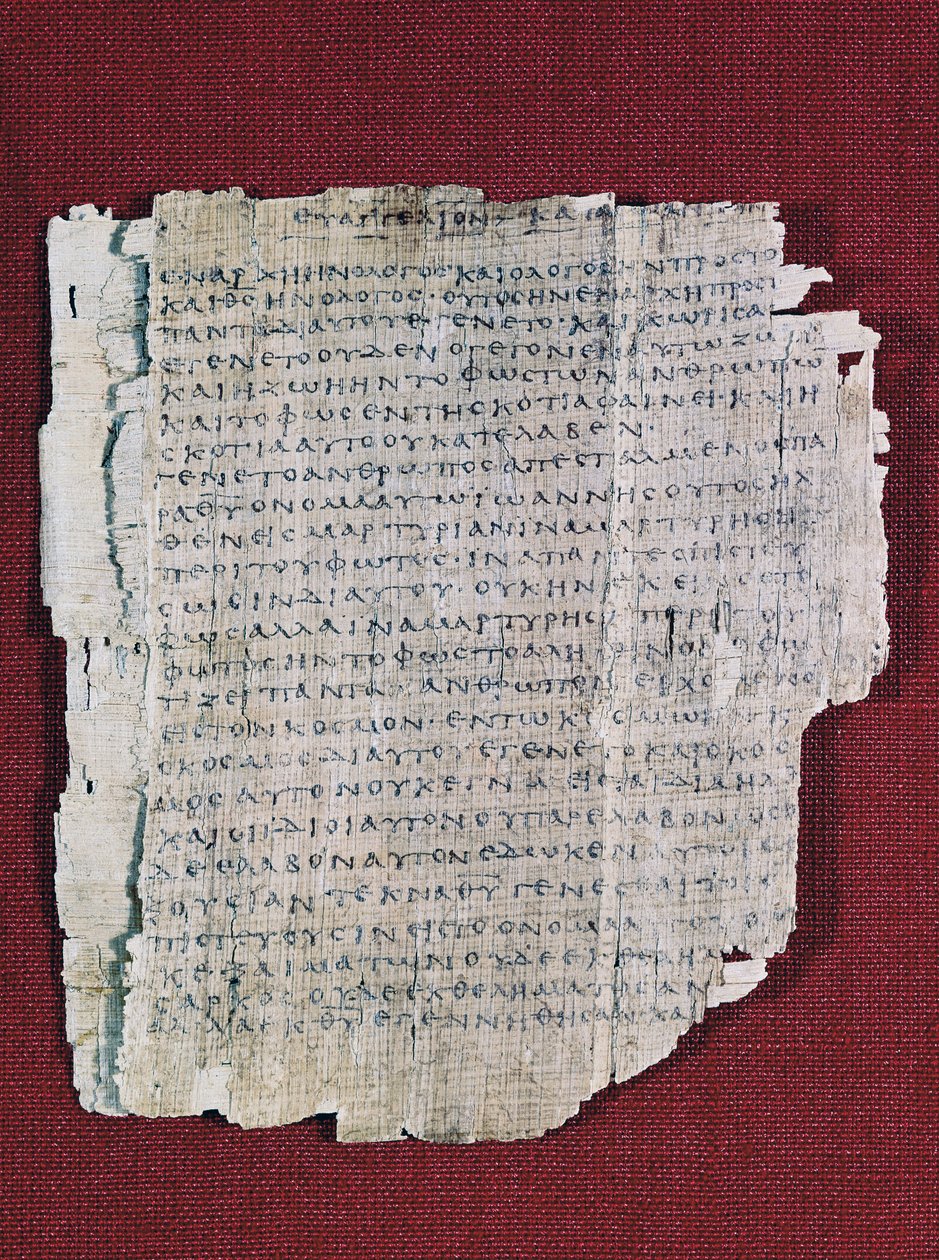 ΕΥΑΓΓΕΛΙΟΝ ΚΑΤΑ
ΕΝΑΡΧΗΗΝΟΛΟΓΟϹΚΑΙΟΛΟΓΟϹΗΝΠΡΟϹΤΟ
ΚΑΙΘ̅Ϲ̅ΗΝΟΛΟΓΟϹ·ΟΥΤΟϹΗΝΕΝΑΡΧΗΠΡΟϹΤ
ΠΑΝΤΑΔΙΑΥΤΟΥΕΓΕΝΕΤΟ·ΚΑΙΧΩΡΙϹΑ
ΕΓΕΝΕΤΟΟΥΔΕΝΟΓΕΓΟΝΕΝΑΥΤΩΖΩΗ
ΚΑΙΗΖΩΗΗΝΤΟΦΩϹΤΩΝΑΝΘΡΩΠΩ
ΚΑΙΤΟΦΩϹΕΝΤΗϹΚΟΤΙΑΦΑΙΝΕΙ·ΚΑΙΗ
ϹΚΟΤΙΑΑΥΤΟΟΥΚΑΤΕΛΑΒΕΝ·
ΓΕΝΕΤΟΑΝΘΡΩΠΟϹΑΠΕϹΤΑΛΜΕΝΟϹΠΑ
ΡΑΘ̅Υ̅ΟΝΟΜΑΑΥΤΩΪΩΑΝΝΗϹΟΥΤΟϹΗΛ
ΘΕΝΕΙϹΜΑΡΤΥΡΙΑΝΙΝΑΜΑΡΤΥΡΗϹΗ
ΠΕΡΙΤΟΥΦΩΤΟϹ·ΙΝΑΠΑΝΤΕϹΠΙϹΤΕΥ
ϹΩϹΙΝΔΙΑΥΤΟΥ·ΟΥΚΗΝΕΚΕΙΝΟϹΤΟ
ΦΩϹΑΛΛΑΙΝΑΜΑΡΤΥΡΗϹΗΠΕΡΙΤΟΥ
ΦΩΤΟϹΗΝΤΟΦΩϹΤΟΑΛΗΘΙΝΟΝΟΦΩ
ΤΙΖΕΙΠΑΝΤΑΑΝΘΡΩΠΟΝΕΡΧΟΜΕΝΟ
ΕΙϹΤΟΝΚΟϹΜΟΝ·ΕΝΤΩΚΟϹΜΩΗΝΚ
ΟΚΟϹΜΟϹΔΙΑΥΤΟΥΕΓΕΝΕΤΟΚΑΙΟΚΟϹ
ΜΟϹΑΥΤΟΝΟΥΚΕΓΝΩΕΙϹΤΑΙΔΙΑΗΛΘ
ΚΑΙΟΙΙΔΙΟΙΑΥΤΟΝΟΥΠΑΡΕΛΑΒΟΝ·ΟϹΟ
ΔΕΕΛΑΒΟΝΑΥΤΟΝΕΔΩΚΕΝΑΥΤΟΙϹΕ
ΞΟΥϹΙΑΝΤΕΚΝΑΘ̅Υ̅ΓΕΝΕϹΘΑΙΤΟΙϹ
ΠΙϹΤΕΥΟΥϹΙΝΕΙϹΤΟΟΝΟΜΑΑΥΤΟΥΟΙΟΥ
ΚΕΞΑΙΜΑΤΩΝΟΥΔΕΕΚΘΕΛΗΜ
ϹΑΡΚΟϹΟΥΔΕΕΚΘΕΛΗΜΑΤΟϹΑΝ
ΑΛΛΑΕΚΘ̅Υ̅ΕΓΕΝΝΗΘΗϹΑΝΚΑΙ